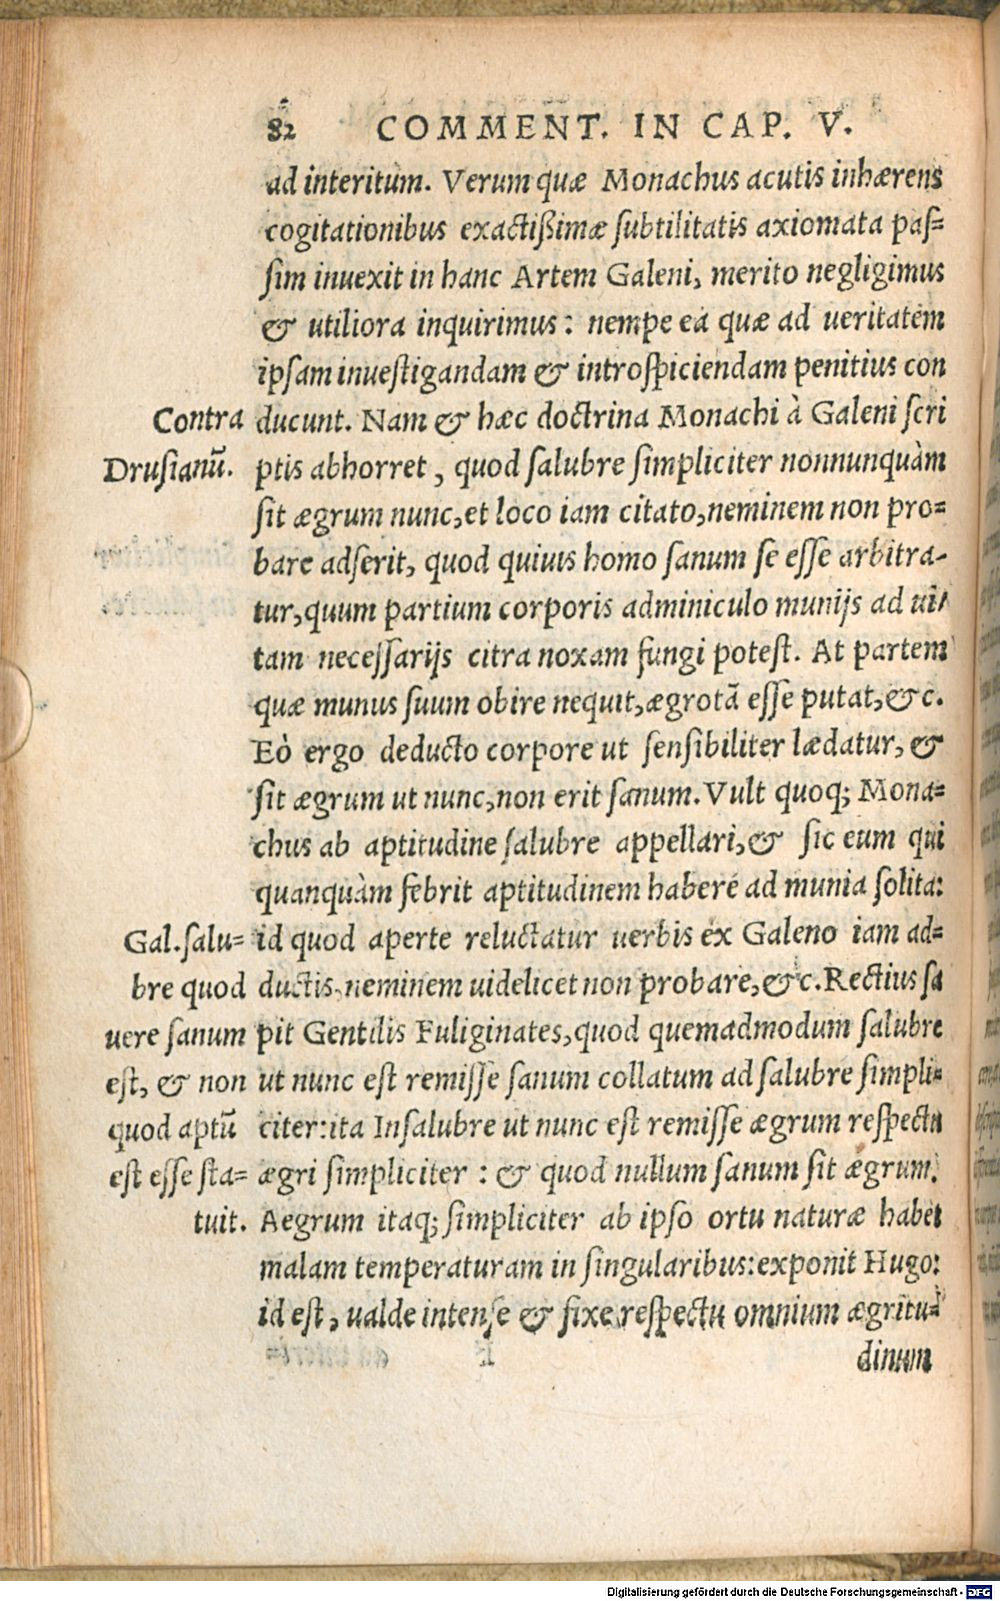 82 COMMENT. IN CAP. V.
ad interitum. Verum quæ Monachus acutis inhærens
cogitationibus exactißimæ ſubtilitatis axiomata paſ=
ſim inuexit in hanc Artem Galeni, merito negligimus
& utiliora inquirimus: nempe ea quæ ad ueritatem
ipſam inueſtigandam & introſpiciendam penitius con
ducunt. Nam & hæc doctrina Monachi à Galeni ſcri
ptis abhorret, quod ſalubre ſimpliciter nonnunquàm
ſit ægrum nunc, et loco iam citato, neminem non pro=
bare adſerit, quod quiuis homo ſanum ſe eſſe arbitra-
tur, quum partium corporis adminiculo munijs ad ui-
tam neceſſarijs citra noxam fungi poteſt. At partem
quæ munus ſuum obire nequit, ægrotã eſſe putat, &c.
Eò ergo deducto corpore ut ſenſibiliter lædatur, &
ſit ægrum ut nunc, non erit ſanum. Vult quoq; Mona=
chus ab aptitudine ſalubre appellari, & ſic eum qui
quanquàm febrit aptitudinem habere ad munia ſolita:
id quod aperte reluctatur uerbis ex Galeno iam ad=
ductis, neminem uidelicet non probare, &c. Rectius ſa
pit Gentilis Fuliginates, quod quemadmodum ſalubre
ut nunc eſt remiſſe ſanum collatum ad ſalubre ſimpli=
citer: ita Inſalubre ut nunc eſt remiſſe ægrum reſpectu
ægri ſimpliciter: & quod nullum ſanum ſit ægrum.
Aegrum itaq; ſimpliciter ab ipſo ortu naturæ habet
malam temperaturam in ſingularibus: exponit Hugo:
id eſt, ualde intenſe & fixe reſpectu omnium ægritu=
dinum
Contra
Druſianũ.
Gal. ſalu=
bre quod
uere ſanum
eſt, & non
quod aptũ
eſt eſſe ſta=
tuit.
Digitalisierung gefördert durch die Deutsche Forschungsgemeinschaft - DFG